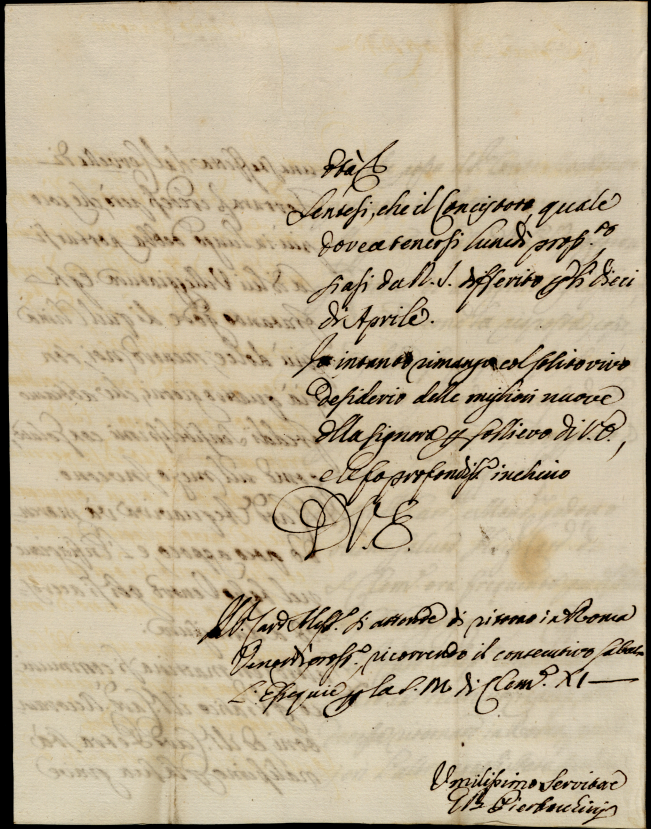 Sentesi, che il Concistoro, quale
dovea tenersi lunedì pross.mo
siasi da N. S. differito alli dieci
di Aprile.
Io intanto rimango col solito vivo
desiderio delle migliori nuove
della Signora per sollievo di V. E.,
e le fo profondiss.o inchino
D. V. E.
Card. si attende di ritorno in Roma
Venerdì pross.o ricorrendo il consecutivo sabato
L'Esequie per la S. M. di Clem.e XI
Umilissimo Servitore